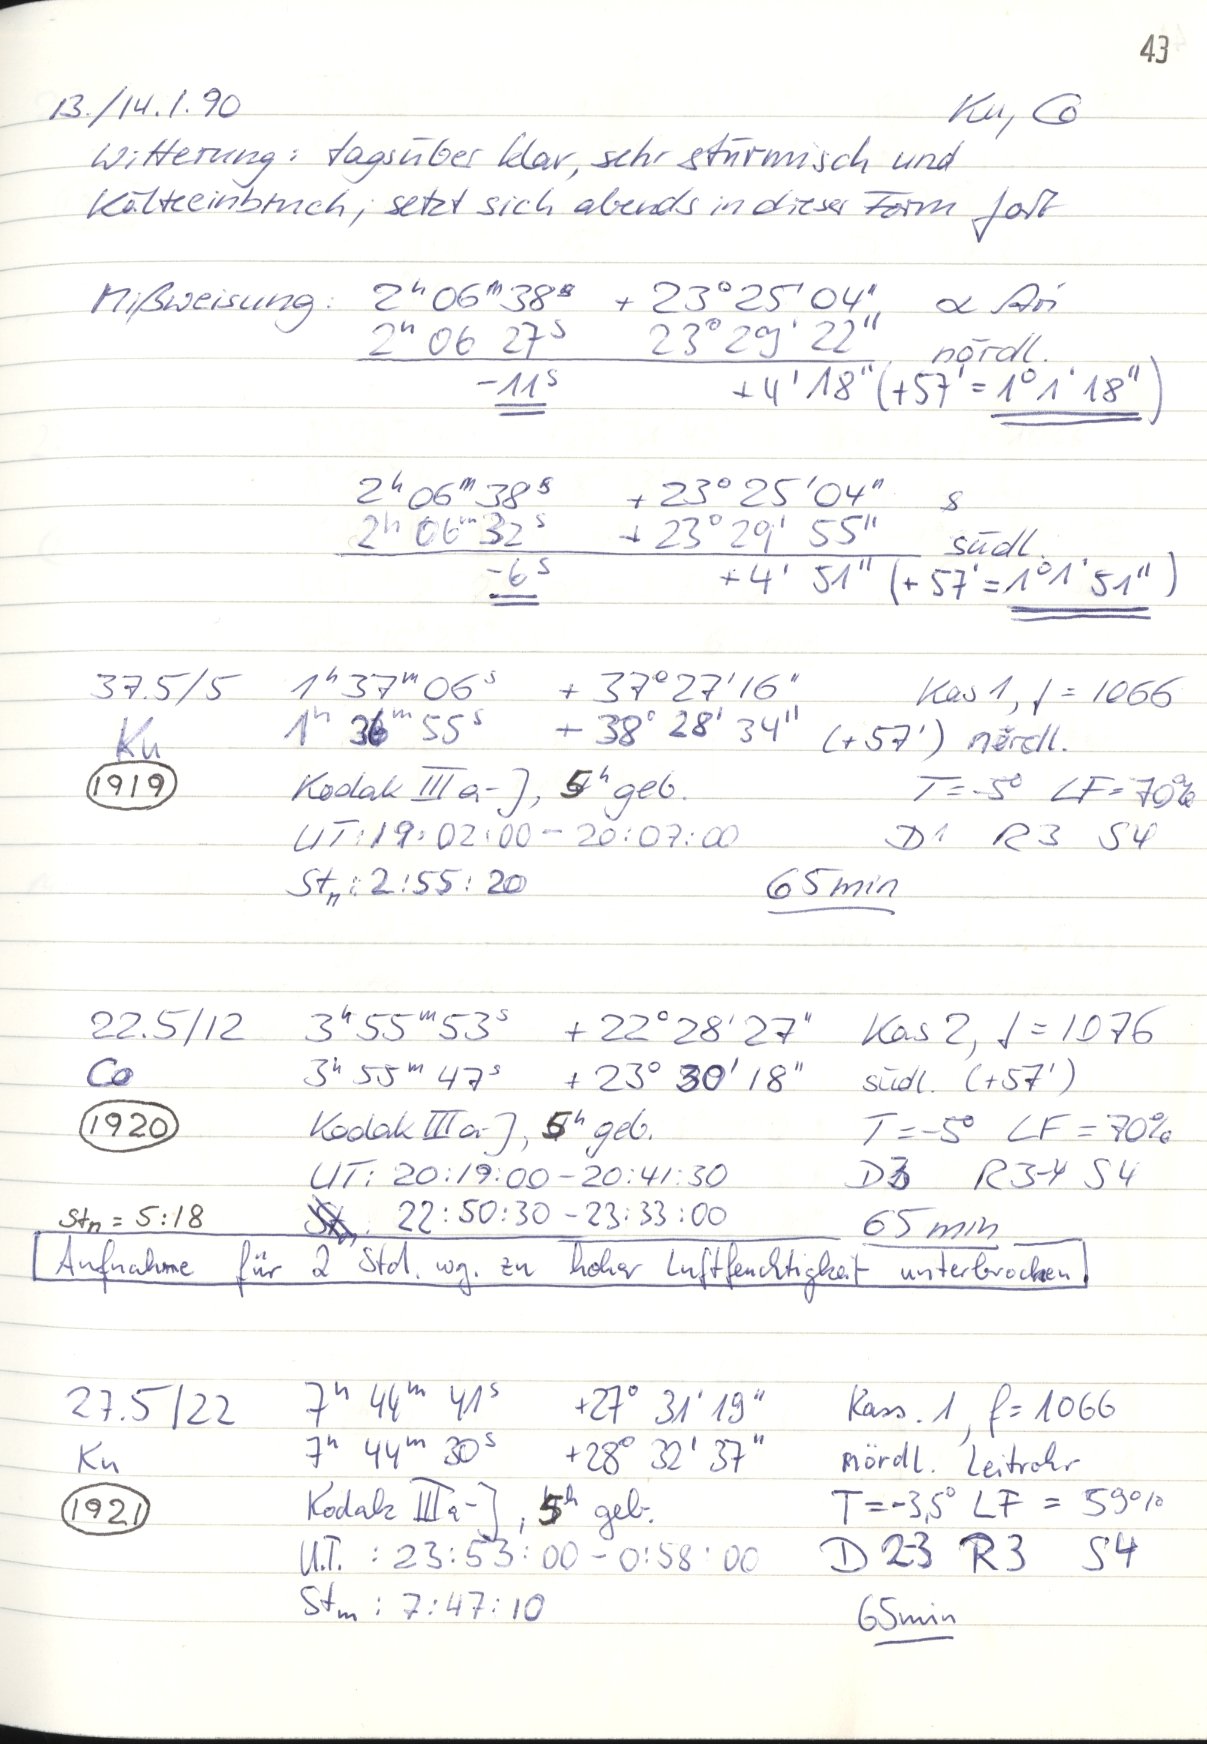 43
13./14.1.90 Ku, Co
Witterung: tagsüber klar, sehr stürmisch und
Kälteeinbruch, setzt sich abends in dieser Form fort
Mißweisung: 2ʰ06ᵐ38ˢ + 23°25'04" α Ari
2ʰ 06 27ˢ 23°29'22" nördl.
-11ˢ +4'18" (+57' = 1°1'18")
2ʰ06ᵐ38ˢ + 23°25'04" s
2ʰ06ᵐ32ˢ + 23°29'55" südl.
-6ˢ +4'51" (+57' = 1°1'51")
37.5/5 1ʰ37ᵐ06ˢ + 37°27'16" Kas 1, f = 1066
Ku 1ʰ36ᵐ55ˢ + 38°28'34" (+57') nördl.
1919 Kodak IIIa-J, 5ʰ geb. T = -5° LF = 70%
UT: 19:02:00 - 20:07:00 D1 R3 S4
Stₙ: 2:55:20 65 min
22.5/12 3ʰ55ᵐ53ˢ + 22°28'27" Kas 2, f = 1076
Co 3ʰ55ᵐ47ˢ + 23°30'18" südl. (+57')
1920 Kodak IIIa-J, 5ʰ geb. T = -5° LF = 70%
UT: 20:19:00 - 20:41:30 D3 R3-4 S4
Stₙ = 5:18 22:50:30 - 23:33:00 65 min
Aufnahme für 2 Std. wg. zu hoher Luftfeuchtigkeit unterbrochen!
27.5/22 7ʰ 44ᵐ 41ˢ +27° 31' 19" Kass. 1, f = 1066
Ku 7ʰ 44ᵐ 30ˢ +28° 32' 37" nördl. Leitrohr
1921 Kodak IIIa-J, 5ʰ geb. T = -3,5° LF = 59%
U.T. : 23:53:00 - 0:58:00 D 2-3 R3 S4
Stₘ : 7:47:10 65 min